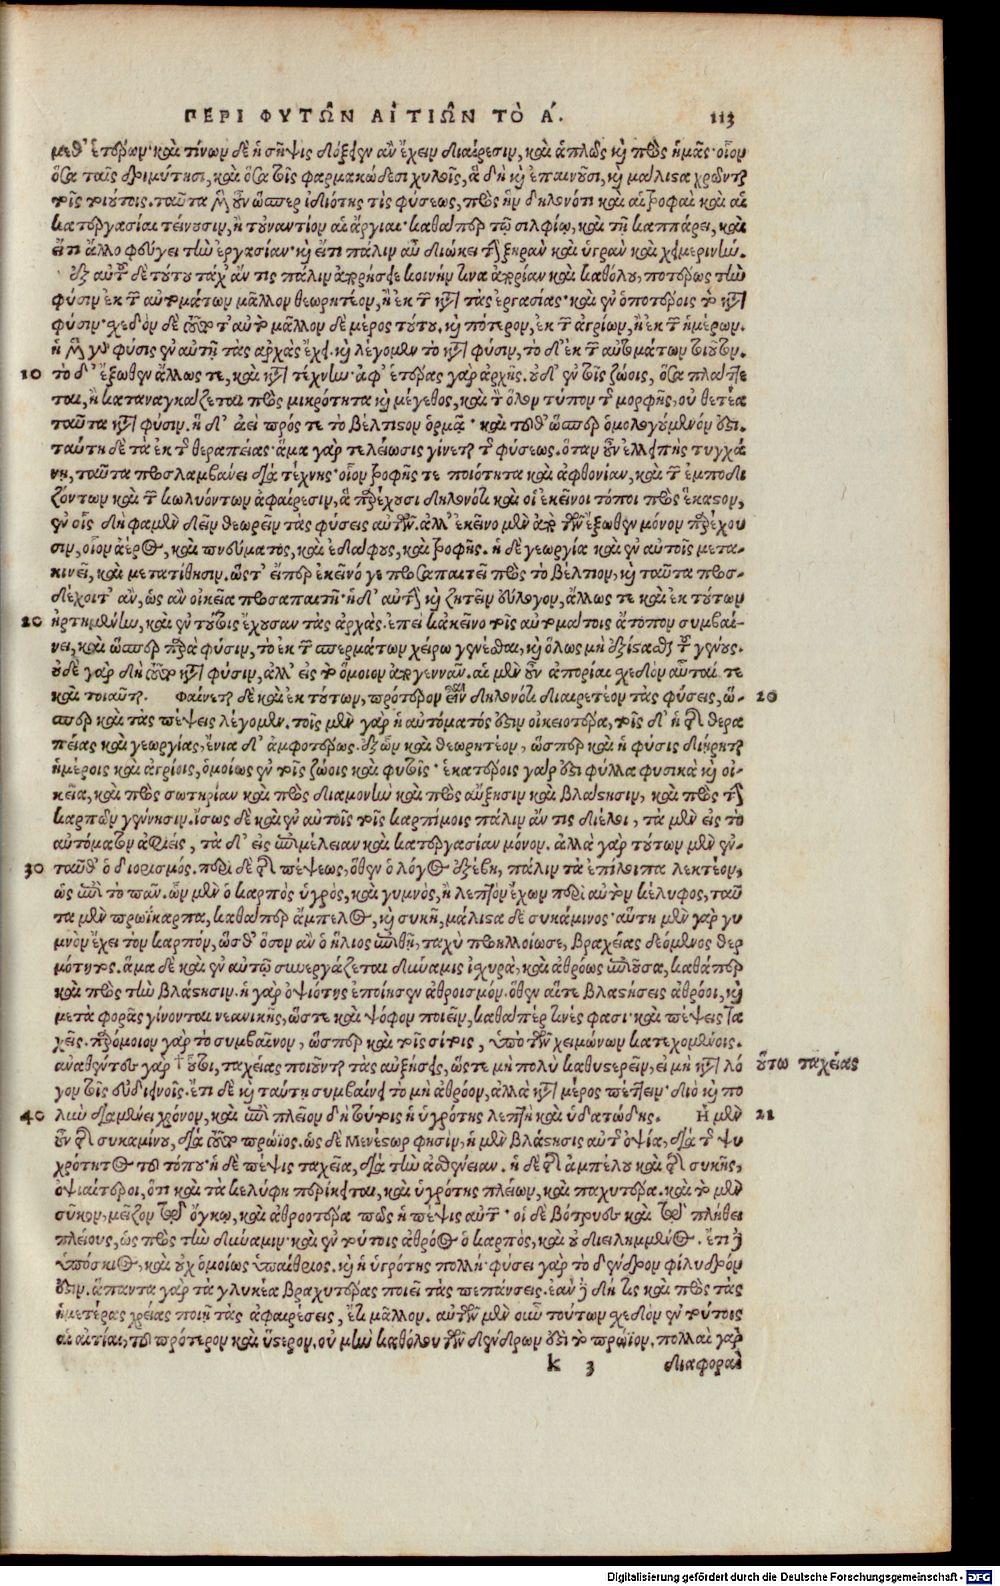 ΠΕΡΙ ΦΥΤΩ͂Ν ΑἸΤΙΩ͂Ν ΤῸ Α. 113
μεθ' ἑτέρων· καὶ τίνων δὲ ἡ σῆψις δόξειεν ἂν ἔχειν διαίρεσιν, καὶ ἁπλῶς κỳ πρὸς ἡμᾶς· οἷον
ὅσα ταῖς δριμύτησι, καὶ ὅσα τοῖς φαρμακώδεσι χυλοῖς, ἃ δὴ κỳ ἐπαινοῦσι, κỳ μάλιστα χρῶνται
τούτοις. ταῦτα μὲν οὖν ὥσπερ ἰδιότης τὶς φύσεως, πρὸς ἣν δηλονότι καὶ αἱ τροφαὶ καὶ αἱ
κατεργασίαι τείνουσιν, ἢ τοὐναντίον αἱ ἀργίαι· καθάπερ τῷ σιλφίῳ, καὶ τῇ καππάρει, καὶ
εἴ τι ἄλλο φεύγει τὴν ἐργασίαν· κỳ εἴ τι πάλιν αὖ διώκει τὴν ξηρὰν καὶ ὑγρὰν καὶ χειμερινήν.
ἐξ αὐτοῦ δὲ τούτου τάχ' ἄν τις πάλιν ἀπορήσειε κοινήν τινα ἀπορίαν καὶ καθόλου, ποτέρως τὴν
φύσιν ἐκ τῶν αὐτομάτων μᾶλλον θεωρητέον, ἢ ἐκ τῶν κατὰ τὰς ἐργασίας· καὶ ἐν ὁποτέροις τὸ κατὰ
φύσιν· σχεδὸν δὲ τοῦτο ταὐτὸ μᾶλλον δὲ μέρος τούτου. κỳ πότερον, ἐκ τῶν ἀγρίων, ἢ ἐκ τῶν ἡμέρων.
ἡ μὲν γὰρ φύσις ἐν αὑτῇ τὰς ἀρχὰς ἔχει. κỳ λέγομεν τὸ κατὰ φύσιν, τὸ δ' ἐκ τῶν αὐτομάτων τοιοῦτον.
10 τὸ δ' ἔξωθεν ἄλλως τε, καὶ κατὰ τέχνην· ἀφ' ἑτέρας γὰρ ἀρχῆς. οὐδ' ἐν τοῖς ζώοις, ὅσα πλάττε
ται, ἢ καταναγκάζεται πρὸς μικρότητα κỳ μέγεθος, καὶ τὸν ὅλον τύπον τῆς μορφῆς, οὐ θετέα
ταῦτα κατὰ φύσιν. ἡ δ' ἀεὶ πρός τε τὸ βέλτιστον ὁρμᾷ· καὶ τοῦθ' ὥσπερ ὁμολογούμενόν ἐστι.
ταύτῃ δὲ τὰ ἐκ τῆς θεραπείας· ἅμα γὰρ τελείωσις γίνεται τῆς φύσεως. ὅταν οὖν ἐλλειπὴς τυγχά
νῃ, ταῦτα προσλαμβάνει διὰ τέχνης· οἷον τροφῆς τε ποιότητα καὶ ἀφθονίαν, καὶ τῶν ἐμποδι
ζόντων καὶ τῶν κωλυόντων ἀφαίρεσιν, ἃ παρέχουσι δηλονότι καὶ οἱ ἐκεῖνοι τόποι πρὸς ἕκαστον,
ἐν οἷς δὴ φαμὲν δεῖν θεωρεῖν τὰς φύσεις αὐτῶν. ἀλλ' ἐκεῖνο μὲν ἀπὸ τῶν ἔξωθεν μόνον παρέχου
σιν, οἷον ἀέρος, καὶ πνεύματος, καὶ ἐδάφους, καὶ τροφῆς. ἡ δὲ γεωργία καὶ ἐν αὐτοῖς μετα-
κινεῖ, καὶ μετατίθησιν. ὥστ' εἴπερ ἐκεῖνό γε προσαπαιτεῖ πρὸς τὸ βέλτιον, κỳ ταῦτα προσ-
δέχοιτ' ἂν, ὡς ἂν οἰκεῖα προσαπαιτῇ· ἡ δ' αὐτὴ κỳ ζητεῖν εὔλογον, ἄλλως τε καὶ ἐκ τούτων
20 ἠρτημένην, καὶ ἐν τούτοις ἔχουσαν τὰς ἀρχάς. ἐπεὶ κἀκεῖνο τοῖς αὐτομάτοις ἄτοπον συμβαί-
νει, καὶ ὥσπερ παρὰ φύσιν, τὸ ἐκ τῶν σπερμάτων χείρω γενέσθαι, κỳ ὅλως μὴ ἐξίστασθαι τοῦ γένους.
οὐδὲ γὰρ δὴ τοῦτο κατὰ φύσιν, ἀλλ' εἰς τὸ ὅμοιον ἀπογεννᾶν. αἱ μὲν οὖν ἀπορίαι σχεδὸν αὗταί τε
καὶ τοιαῦται. Φαίνεται δὲ καὶ ἐκ τούτων, πρότερον εἶναι δηλονότι διαιρετέον τὰς φύσεις, ὥ- 20
σπερ καὶ τὰς πέψεις λέγομεν. τοῖς μὲν γὰρ ἡ αὐτόματός ἐστιν οἰκειοτέρα, τοῖς δ' ἡ διὰ θερα
πείας καὶ γεωργίας, ἔνια δ' ἀμφοτέρως. ἐξ ὧν καὶ θεωρητέον, ὥσπερ καὶ ἡ φύσις διῄρηται
ἡμέροις καὶ ἀγρίοις, ὁμοίως ἐν τοῖς ζώοις καὶ φυτοῖς· ἑκατέροις γάρ ἐστι φύλλα φυσικὰ κỳ οἰ-
κεῖα, καὶ πρὸς σωτηρίαν καὶ πρὸς διαμονὴν καὶ πρὸς αὔξησιν καὶ βλάστησιν, καὶ πρὸς τὴν
καρπῶν γέννησιν. ἴσως δὲ καὶ ἐν αὐτοῖς τοῖς καρπίμοις πάλιν ἄν τις διέλοι, τὰ μὲν εἰς τὸ
αὐτόματον ἀφιείς, τὰ δ' εἰς ἐπιμέλειαν καὶ κατεργασίαν μόνον. ἀλλὰ γὰρ τούτων μὲν ἐν-
30 ταῦθ' ὁ διορισμός. περὶ δὲ τῆς πέψεως, ὅθεν ὁ λόγος ἐξέβη, πάλιν τὰ ἐπίλοιπα λεκτέον,
ὡς ἐπὶ τὸ πᾶν. ὧν μὲν ὁ καρπὸς ὑγρός, καὶ γυμνὸς, ἢ λεπτὸν ἔχων περὶ αὑτὸν κέλυφος, ταῦ
τα μὲν πρωΐκαρπα, καθάπερ ἄμπελος, κỳ συκῆ, μάλιστα δὲ συκάμινος· αὕτη μὲν γὰρ γυ
μνὸν ἔχει τὸν καρπόν, ὥσθ' ὅσον ἂν ὁ ἥλιος ἐπέλθῃ, ταχὺ προηλλοίωσε, βραχείας δεόμενος θερ
μότητος. ἅμα δὲ καὶ ἐν αὐτῷ συνεργάζεται δύναμις ἰσχυρὰ, καὶ ἀθρόως ἐπιοῦσα, καθάπερ
καὶ πρὸς τὴν βλάστησιν. ἡ γὰρ ὀψιότης ἐποίησεν ἀθροισμόν. ὅθεν αἵ τε βλαστήσεις ἀθρόοι, κỳ
μετὰ φορᾶς γίνονται νεανικῆς, ὥστε καὶ ψόφον ποιεῖν, καθάπέρ τινές φασι· καὶ πέψεις τα
χεῖς. παρόμοιον γὰρ τὸ συμβαῖνον, ὥσπερ καὶ τοῖς σίτοις, ὑπὸ τῶν χειμώνων κατεχομένοις.
ἀναθέντες γὰρ † οὗτοι, ταχείας ποιοῦνται τὰς αὐξήσεις, ὥστε μὴ πολὺ καθυστερεῖν, εἰ μὴ κατὰ λό οὕτω ταχείας
γον τοῖς εὐδιεινοῖς. ἔτι δὲ κỳ ταύτῃ συμβαίνει τὸ μὴ ἀθρόον, ἀλλὰ κατὰ μέρος πέττειν· διὸ κỳ πο
40 λὺν διαμένει χρόνον, καὶ ἐπὶ πλεῖον δὴ τούτοις ἡ ὑγρότης λεπτὴ καὶ ὑδατώδης. Ἡ μὲν 21
οὖν τῆς συκαμίνου, διὰ τοῦτο πρώϊος. ὡς δὲ Μενέστωρ φησὶν, ἡ μὲν βλάστησις αὐτῆς ὀψία, διὰ τὴν ψυ
χρότητος τοῦ τόπου· ἡ δὲ πέψις ταχεῖα, διὰ τὴν ἀσθένειαν. ἡ δὲ τῆς ἀμπέλου καὶ τῆς συκῆς,
ὀψιαίτεροι, ὅτι καὶ τὰ κελύφη περίκειται, καὶ ὑγρότης πλείων, καὶ παχυτέρα. καὶ τὸ μὲν
σῦκον, μεῖζον τῷ ὄγκῳ, καὶ ἀθροοτέρα πως ἡ πέψις αὐτῶν· οἱ δὲ βότρυς καὶ τῷ πλήθει
πλείους, ὡς πρὸς τὴν δύναμιν· καὶ ἐν τούτοις ἀθρόος ὁ καρπὸς, καὶ οὐ διειλημμένος. ἔτι δὲ
ὑπόσκιος, καὶ οὐχ ὁμοίως ὑπαίθριος. κỳ ἡ ὑγρότης πολλή· φύσει γὰρ τὸ δένδρον φίλυδρόν
ἐστιν. ἅπαντα γὰρ τὰ γλυκέα βραχυτέρας ποιεῖ τὰς πεπάνσεις. ἐὰν δὲ δή τις καὶ πρὸς τὰς
ἡμετέρας χρείας ποιῇ τὰς ἀφαιρέσεις, ἔτι μᾶλλον. αὐτῶν μὲν οὖν τούτων σχεδὸν ἐν τούτοις
αἱ αἰτίαι, τοῦ πρότερον καὶ ὕστερον. οὐ μὴν καθόλου τῶν δένδρων ἐστὶ τὸ πρώϊον. πολλαὶ γὰρ
k 3 διαφοραὶ
Digitalisierung gefördert durch die Deutsche Forschungsgemeinschaft - DFG